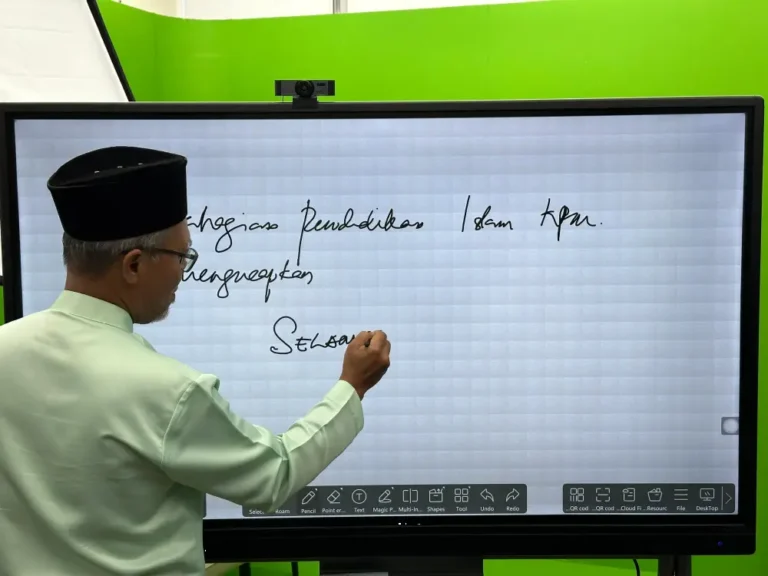 ahagian Pendidikan Islam KPM.
mengucapkan
SELAM
Pencil Point er... Text Magic P... Multi-In... Shapes Tool Undo Redo ...QR cod ...QR cod ...Cloud Fi... Resourc File DeskTop